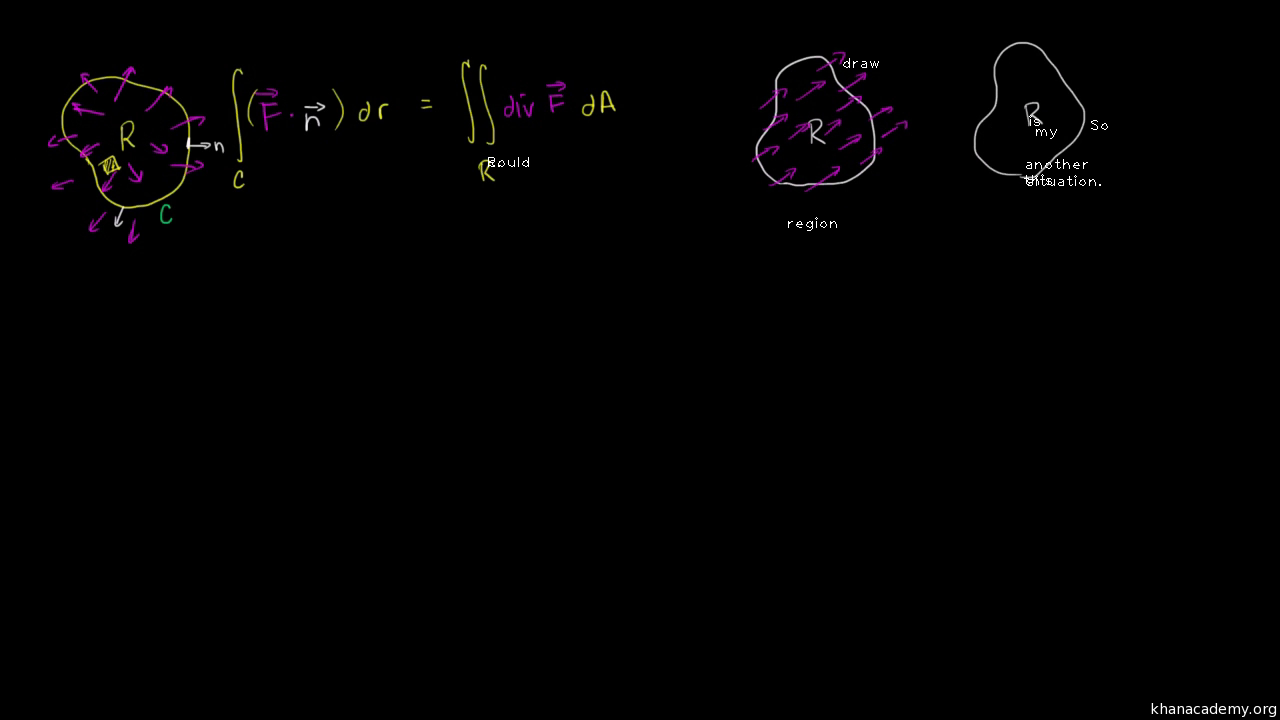 R
n
C
∫ (F⃗ · n⃗) dr = ∬ div F⃗ dA
C
R
could
R
draw
region
R
is
my
So
another
this
situation.
khanacademy.org